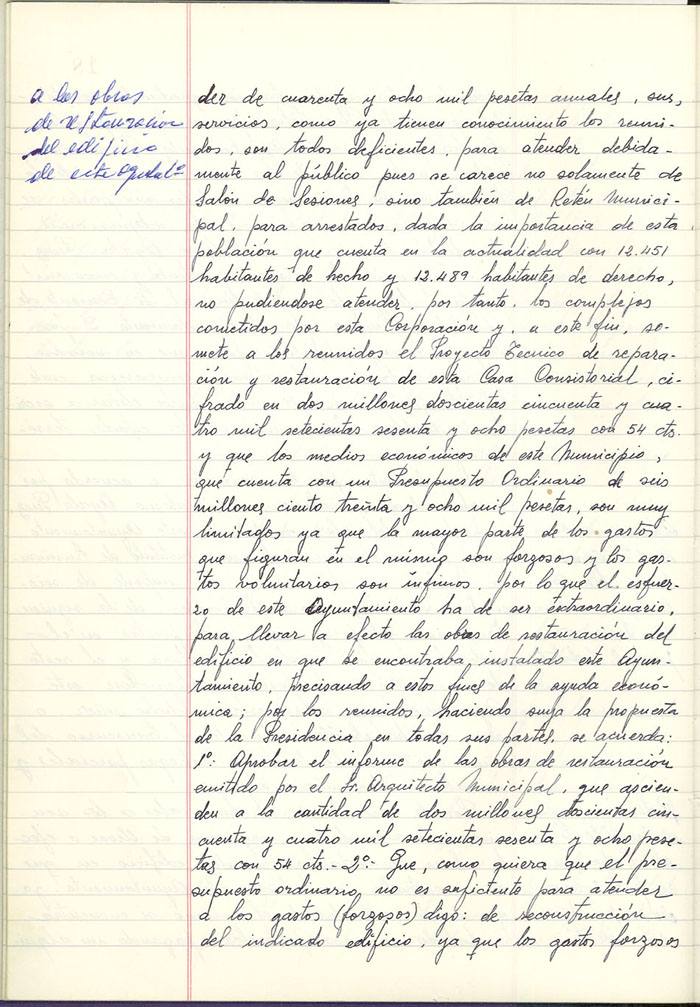 a las obras
de restauración
del edificio
de este
der de cuarenta y ocho mil pesetas anuales, sus,
servicios, como ya tienen conocimiento los reuni-
dos, son todos deficientes, para atender debida-
mente al público pues se carece no solamente de
Salón de Sesiones, sino también de Retén Munici-
pal, para arrestados, dada la importancia de esta
población que cuenta en la actualidad con 12.451
habitantes de hecho y 12.489 habitantes de derecho,
no pudiendose atender, por tanto, los complejos
cometidos por esta Corporación y, a este fin, so-
mete a los reunidos el Proyecto Tecnico de repara-
ción y restauración de esta Casa Consistorial, ci-
frado en dos millones doscientas cincuenta y cua-
tro mil setecientas sesenta y ocho pesetas con 54 cts.
y que los medios económicos de este Municipio,
que cuenta con un Presupuesto Ordinario de seis
millones ciento treinta y ocho mil pesetas, son muy
limitados ya que la mayor parte de los gastos
que figuran en el mismo son forzosos y los gas-
tos voluntarios son ínfimos, por lo que el esfuer-
zo de este Ayuntamiento ha de ser extraordinario,
para llevar a efecto las obras de restauración del
edificio en que se encontraba instalado este Ayun-
tamiento, precisando a estos fines de la ayuda econó-
mica; por los reunidos, haciendo suya la propuesta
de la Presidencia en todas sus partes, se acuerda:
1º: Aprobar el informe de las obras de restauración
emitido por el Sr. Arquitecto Municipal, que ascien-
den a la cantidad de dos millones doscientas cin-
cuenta y cuatro mil setecientas sesenta y ocho pese-
tas, con 54 cts.- 2º:- Que, como quiera que el pre-
supuesto ordinario no es suficiente para atender
a los gastos (forzosos) digo: de reconstrucción
del indicado edificio, ya que los gastos forzosos